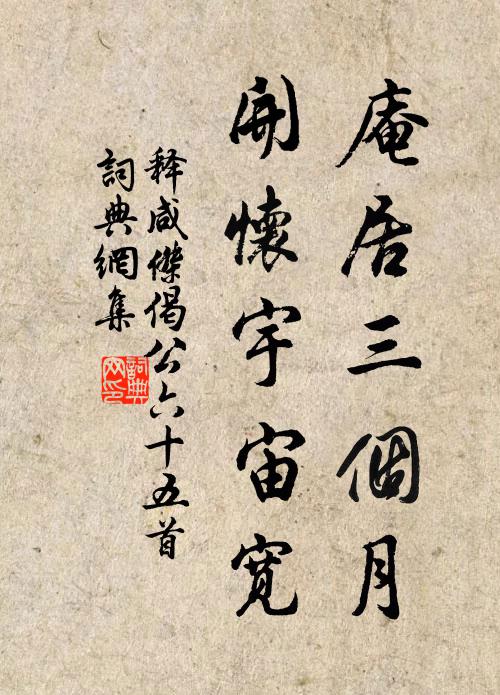 庵居三個月
開懷宇宙寬
释咸傑偈公六十五首
詞典網集
詞典
网印